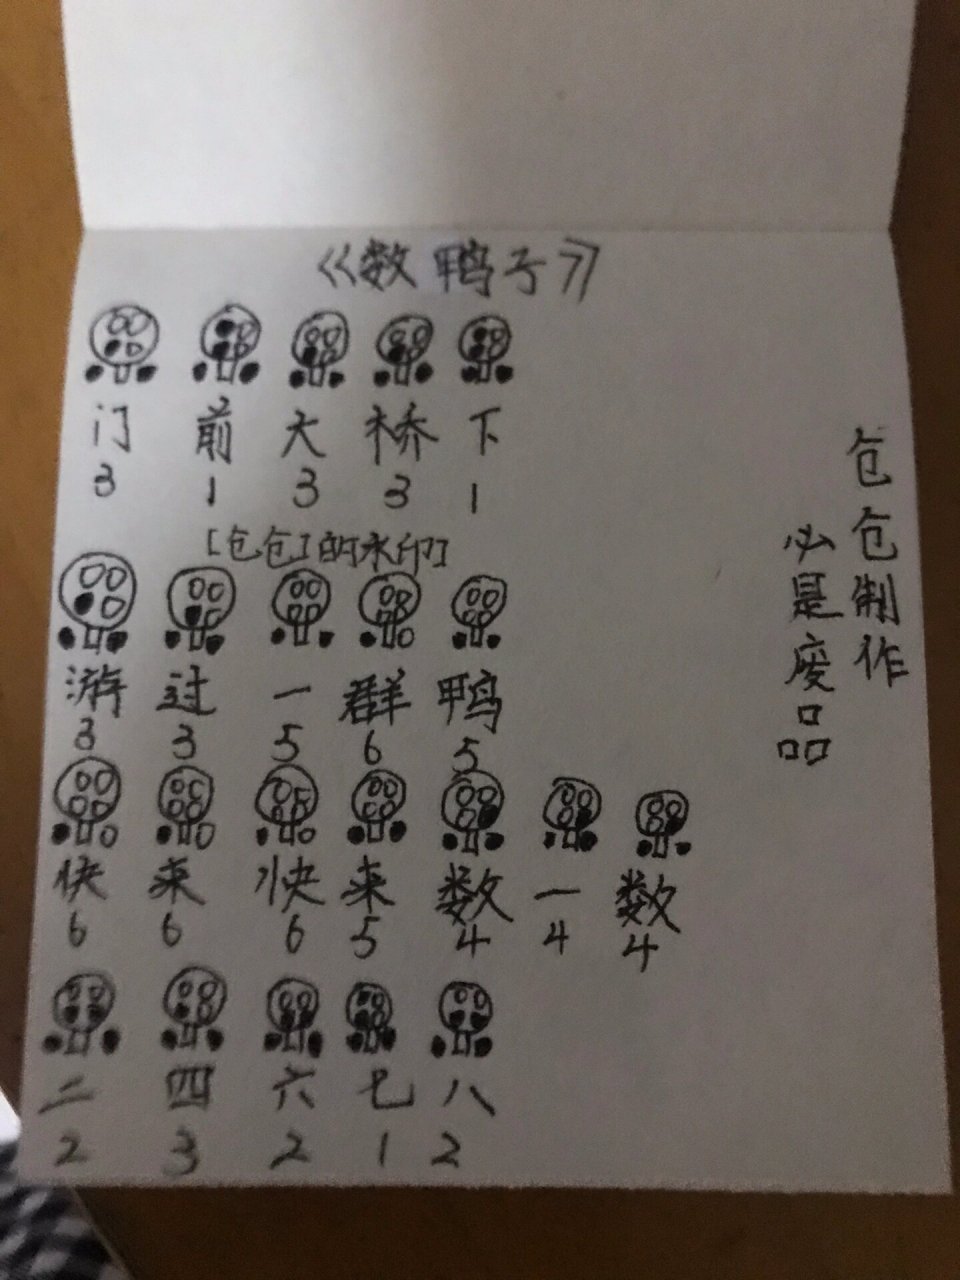 《数鸭子》
门 前 大 桥 下
3 1 3 3 1
[仓仓]的水印]
游 过 一 群 鸭
3 3 5 6 5
快 来 快 来 数 一 数
6 6 6 5 4 4 4
二 四 六 七 八
2 3 2 1 2
仓仓制作
必是废品